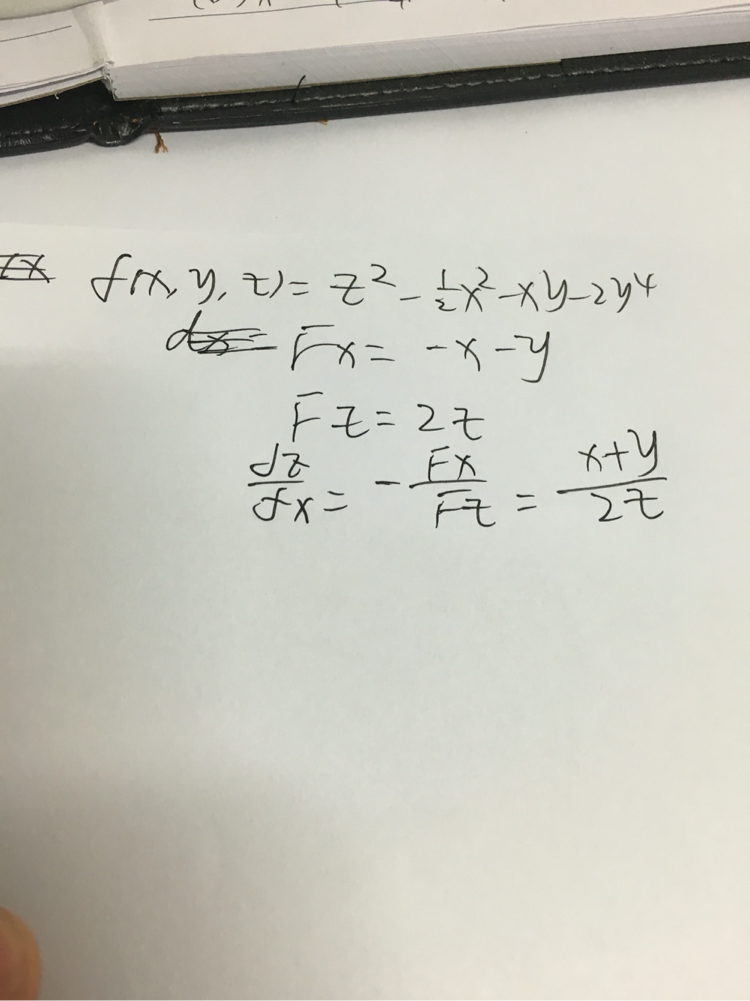 f(x, y, z) = z² - ½x² - xy - 2y⁴
Fx = -x - y
Fz = 2z
dz/dx = - Fx/Fz = x+y/2z